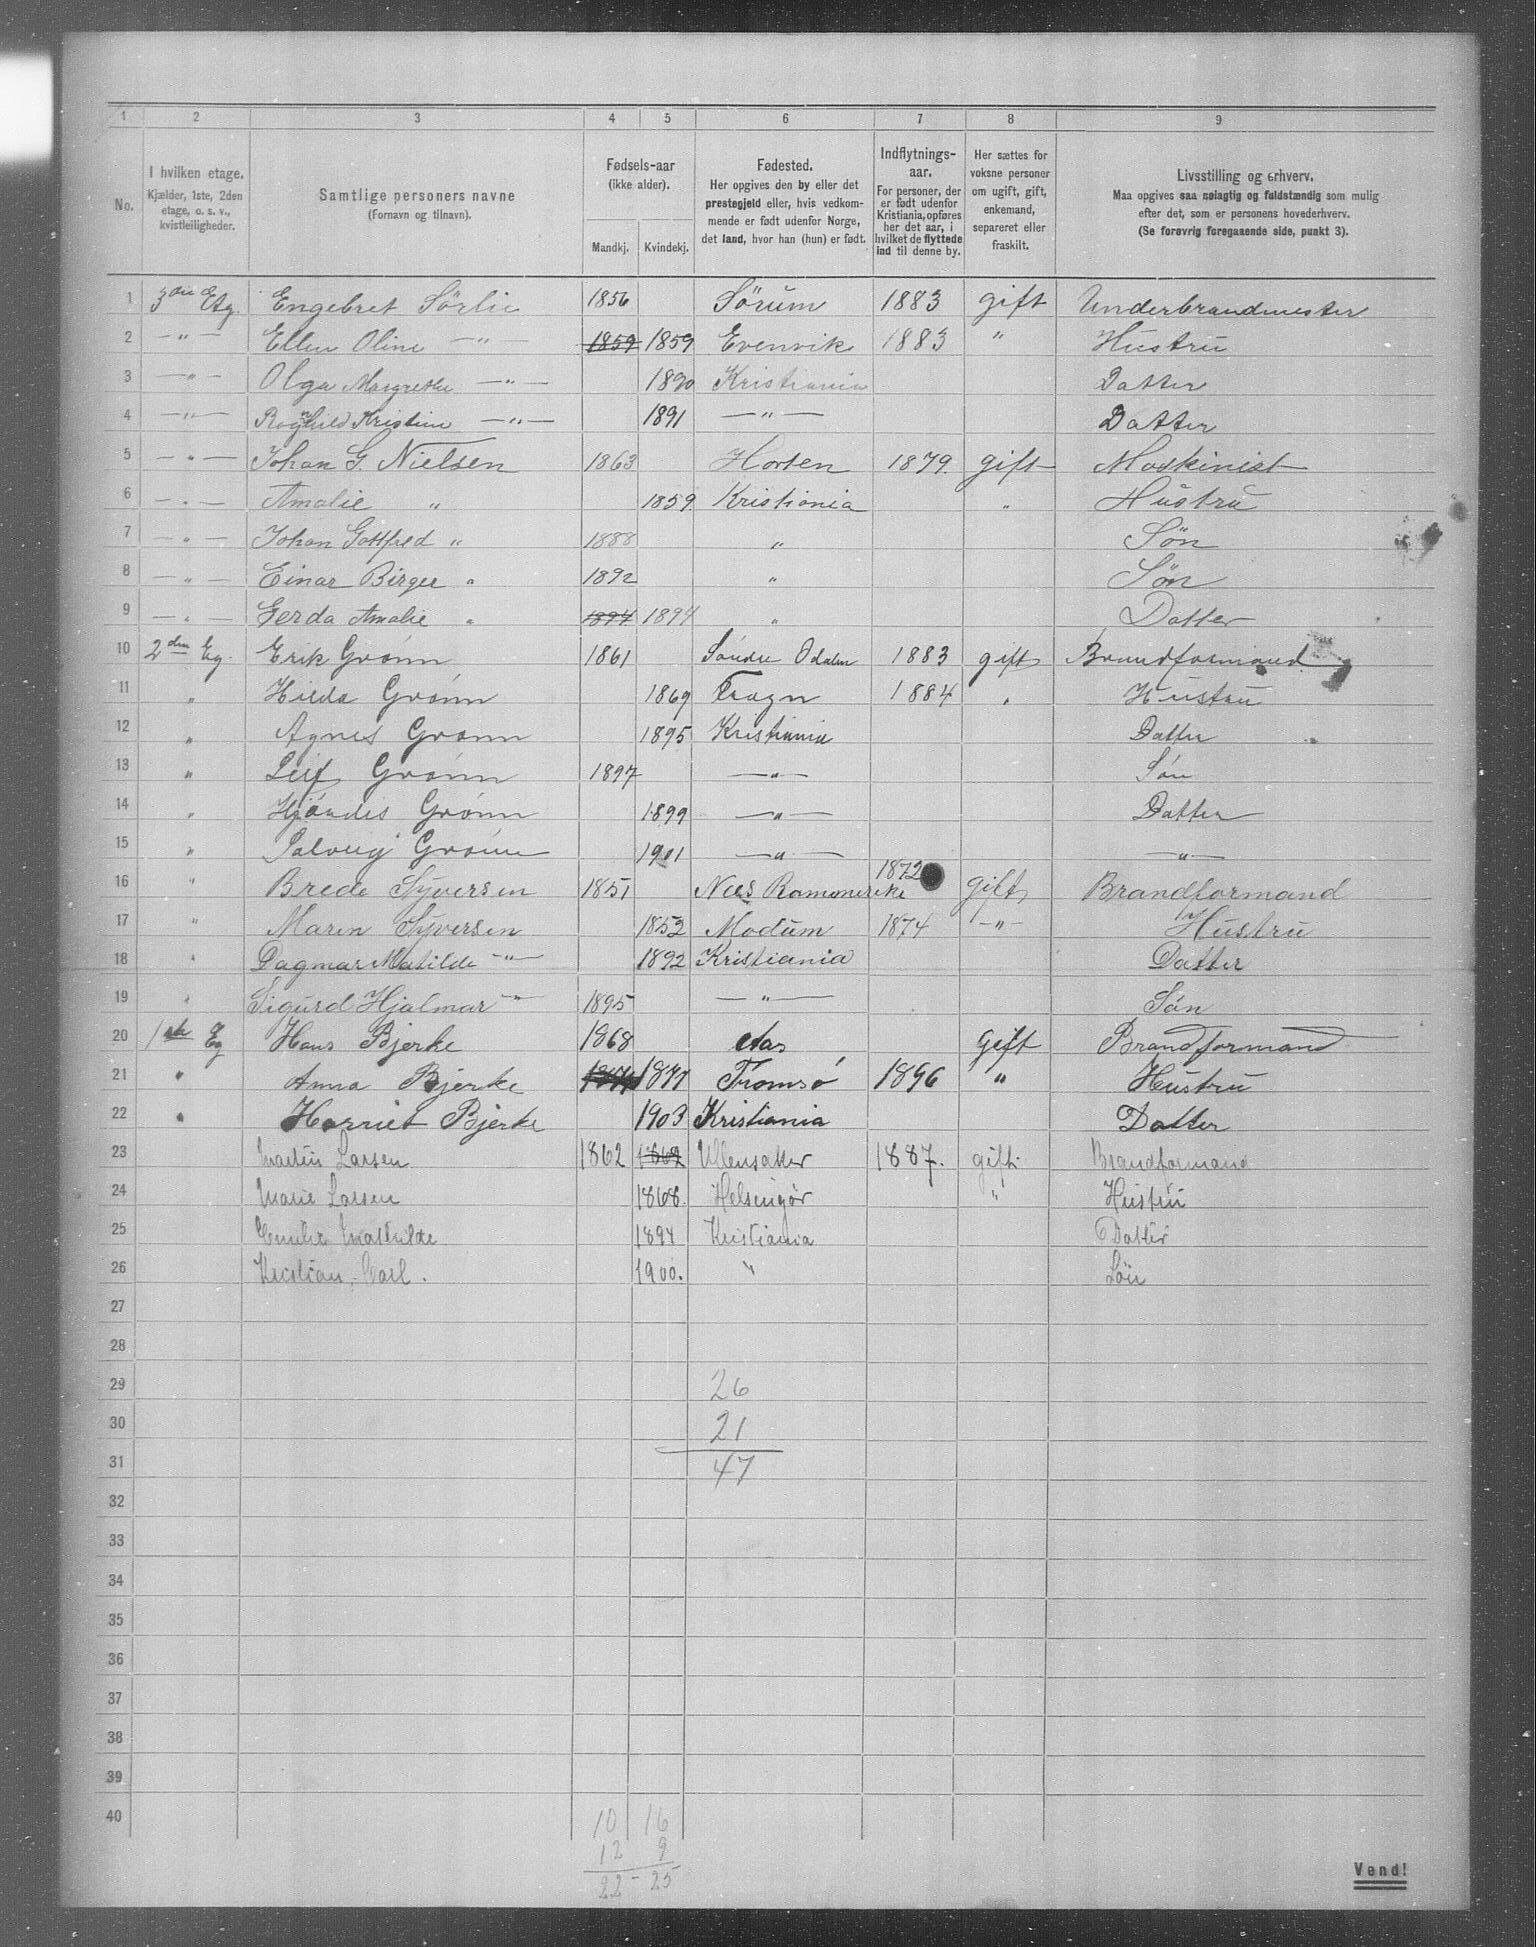 1 2 3 4 5 6 7 8 9
No. I hvilken etage. Kjælder, 1ste, 2den etage, o. s. v., kvistleiligheder.
Samtlige personers navne (Fornavn og tilnavn).
Fødsels-aar (ikke alder). Mandkj. Kvindekj.
Fødested. Her opgives den by eller det prestegjeld eller, hvis vedkommende er født udenfor Norge, det land, hvor han (hun) er født.
Indflytnings-aar. For personer, der er født udenfor Kristiania, opføres her det aar, i hvilket de flyttede ind til denne by.
Her sættes for voksne personer om ugift, gift, enkemand, separeret eller fraskilt.
Livsstilling og erhverv. Maa opgives saa nøiagtig og fuldstændig som mulig efter det, som er personens hovederhverv. (Se forøvrig foregaaende side, punkt 3).
1 3die Etg. Engebret Sörlie 1856 Sörum 1883 gift Underbrandmester
2 —"— Ellen Oline —"— 1859 1859 Evenvik 1883 " Hustru
3 —"— Olga Margrethe —"— 1890 Kristiania Datter
4 —"— Ragnhild Kristine —"— 1891 —"— Datter
5 —"— Johan G. Nielsen 1863 Horten 1879. gift Maskinist
6 —"— Amalie " 1859 Kristiania " Hustru
7 —"— Johan Gottfred " 1888 " Søn
8 —"— Einar Birger " 1892 " Søn
9 —"— Gerda Amalie " 1894 1894 " Datter
10 2den Eg. Erik Grönn 1861 Söndre Odalen 1883 gift Brandformand
11 " Hilda Grönn 1869 Trogn 1884 " Hustru
12 " Agnes Grönn 1895 Kristiania Datter
13 " Leif Grönn 1897 —"— Sön
14 " Hjördis Grönn 1899 —"— Datter
15 " Solveig Grönn 1901 —"— —"—
16 " Brede Syversen 1851 Næs Romerike 1872 gift Brandformand
17 " Maren Syversen 1852 Modum 1874 —"— Hustru
18 " Dagmar Matilde —"— 1892 Kristiania Datter
19 " Sigurd Hjalmar —"— 1895 —"— Sön
20 1ste Eg Hans Bjerke 1868 Aas gift Brandformand
21 " Anna Bjerke 1877 Tromsö 1896 " Hustru
22 " Harriet Bjerke 1903 Kristiania Datter
23 Martin Larsen 1862 1862 Ullensaker 1887. gift. Brandformand
24 Marie Larsen 1868. Helsingør " Hustru
25 Emilie Mathilde 1894 Kristiania Datter
26 Kristian, Carl. 1900. " Sön
27
28
29 26
30 21
31 47
32
33
34
35
36
37
38
39
40 10 16
12 9
22 - 25
Vend!